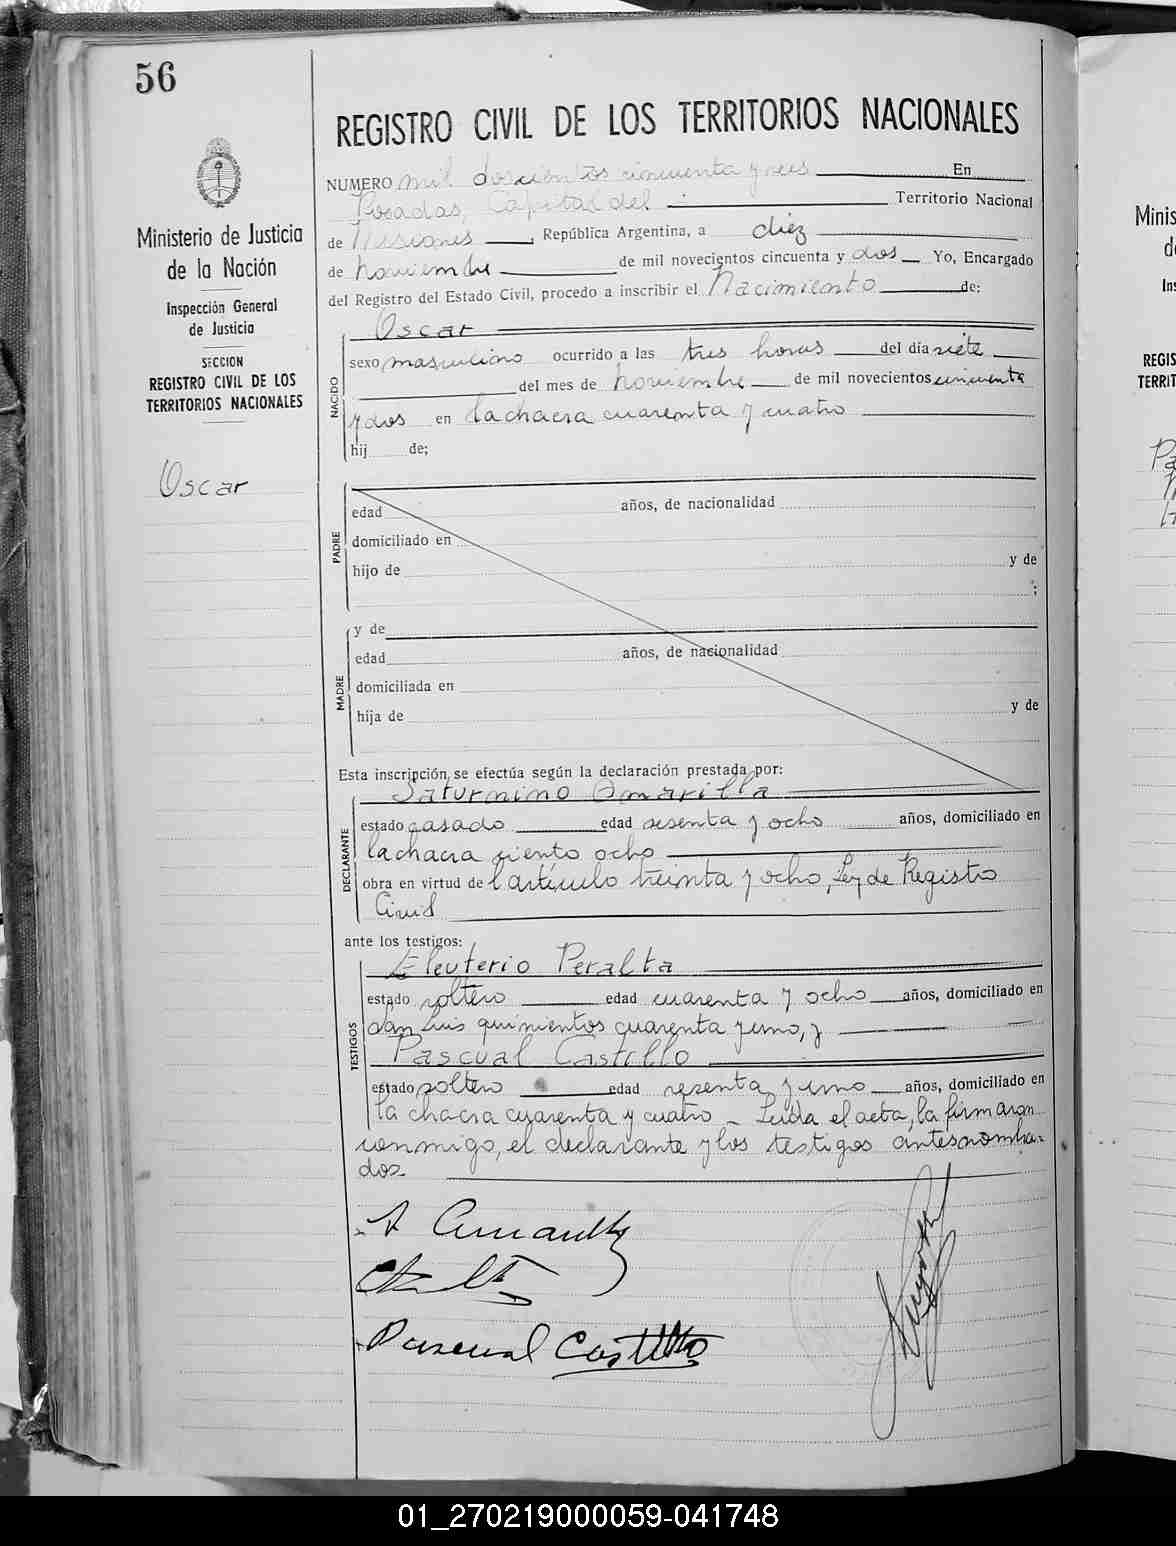 56
REGISTRO CIVIL DE LOS TERRITORIOS NACIONALES
Ministerio de Justicia
de la Nación
Inspección General
de Justicia
SECCION
REGISTRO CIVIL DE LOS
TERRITORIOS NACIONALES
Oscar
NUMERO mil doscientos cincuenta y seis En
Posadas, Capital del Territorio Nacional
de Misiones, República Argentina, a diez
de noviembre de mil novecientos cincuenta y dos Yo, Encargado
del Registro del Estado Civil, procedo a inscribir el Nacimiento de:
NACIDO
Oscar
sexo masculino ocurrido a las tres horas del día siete
del mes de noviembre de mil novecientos cincuenta
y dos en la chacra cuarenta y cuatro
hij de;
PADRE
edad años, de nacionalidad
domiciliado en
hijo de y de
;
MADRE
y de
edad años, de nacionalidad
domiciliada en
hija de y de
Esta inscripción se efectúa según la declaración prestada por:
DECLARANTE
Saturnino Amarilla
estado casado edad sesenta y ocho años, domiciliado en
la chacra ciento ocho
obra en virtud del artículo treinta y ocho, Ley de Registro
Civil
ante los testigos:
TESTIGOS
Eleuterio Peralta
estado soltero edad cuarenta y ocho años, domiciliado en
San Luis quinientos cuarenta y uno, y
Pascual Castillo
estado soltero edad sesenta y uno años, domiciliado en
la chacra cuarenta y cuatro - Leída el acta, la firmaron
conmigo, el declarante y los testigos antes nombra-
dos
Pascual Castillo
Minis
REGIS
TERRIT
01_270219000059-041748